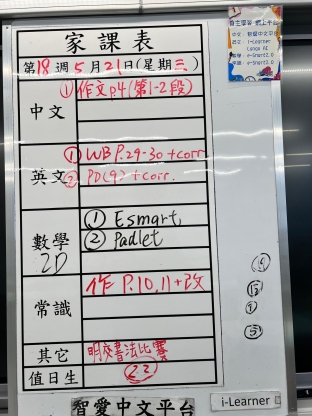 家課表
第18週5月21日(星期三)
中文
①作文P.4(第1-2段)
英文
①WB P.29-30+corr
②PD(9)+corr.
數學
2D
①Esmart
②Padlet
常識
作 P.10,11+改
其它
明交書法比賽
值日生
(22)
智愛中文平台
i-Learner
自主學習 網上平台
中文: 智愛中文平台
英文: i-Learner
數學: e-Smart2.0
常識: e-Smart2.0
⑮
①
⑤